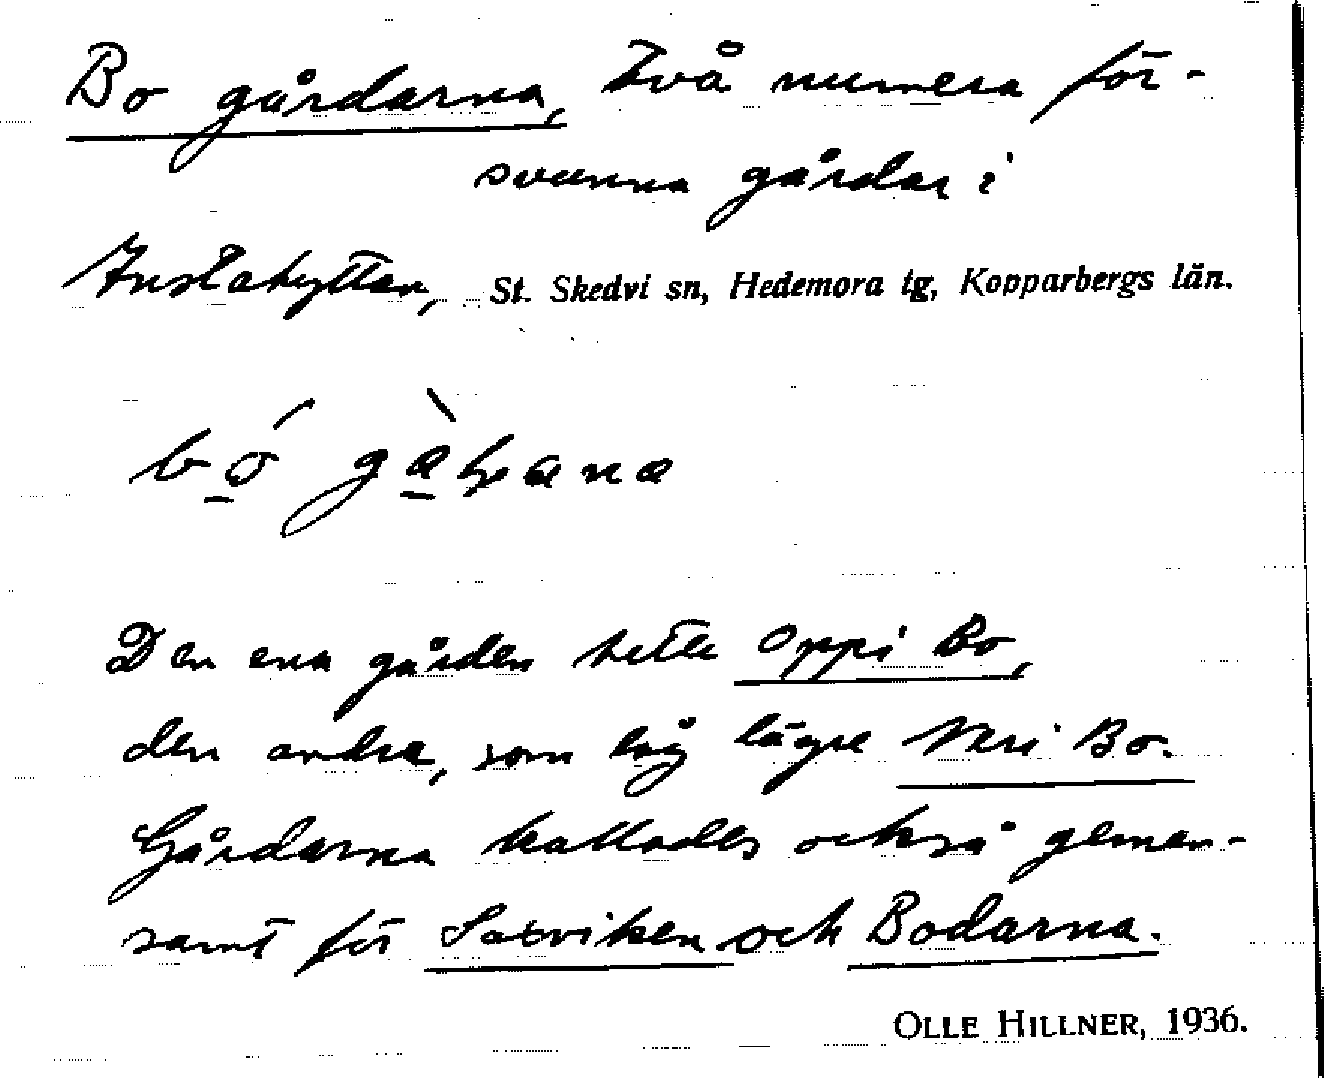 Bo gårdarna, Två numera för-
svunna gårdar i
Justahyttan, St. Skedvi sn, Hedemora tg, Kopparbergs län.
Den ena gården hette Oppi Bo,
den andra, som låg lägre Neri Bo.
Gårdarna kallades också gemen-
samt för Saxviken och Bodarna.
OLLE HILLNER, 1936.